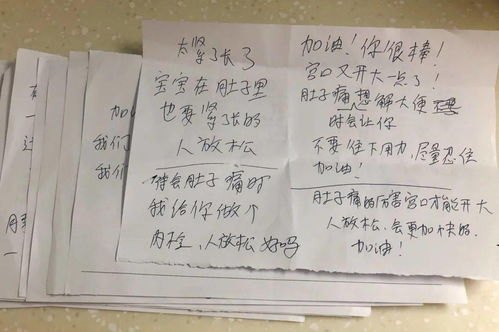 太紧张了
宝宝在肚子里
也要紧张的
人放松
待会肚子痛的
我给你做个
内检，人放松好吗
加油！你很棒！
宫口又开大一点了！
肚子痛想解大便
时会让你
不要往下用力，尽量忍住
加油！
肚子痛的厉害宫口才能开大
人放松，会更加快的.
加油！
加
我们
我们